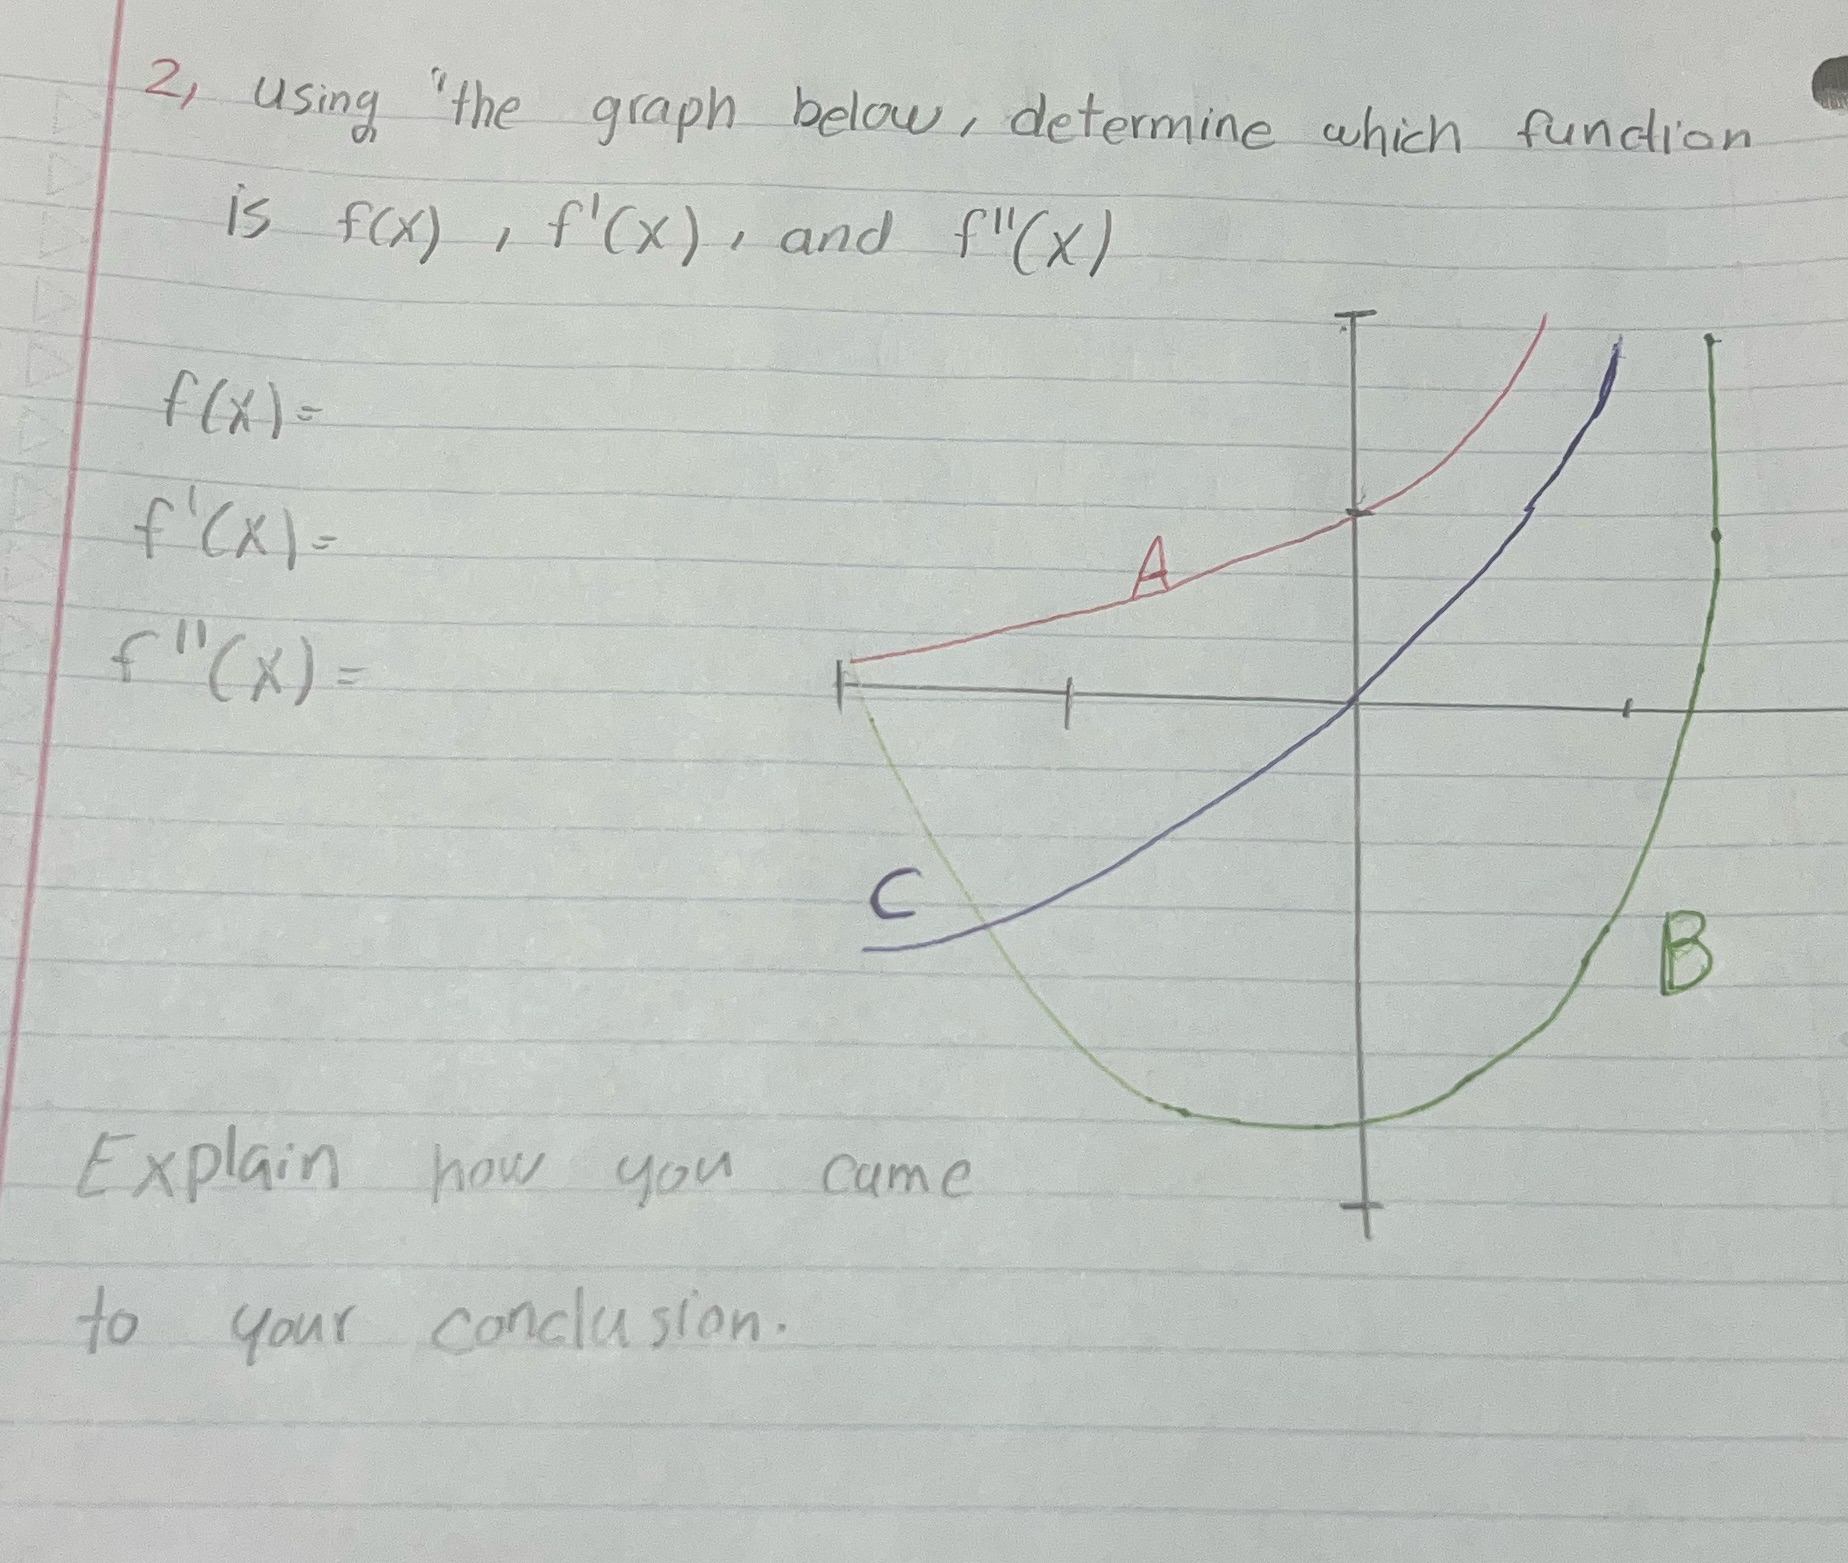 2, using "the graph below, determine which function
is f(x), f'(x), and f"(x)
f(x)=
f'(x)=
f"(x)=
A
C
B
Explain how you came
to your conclusion.